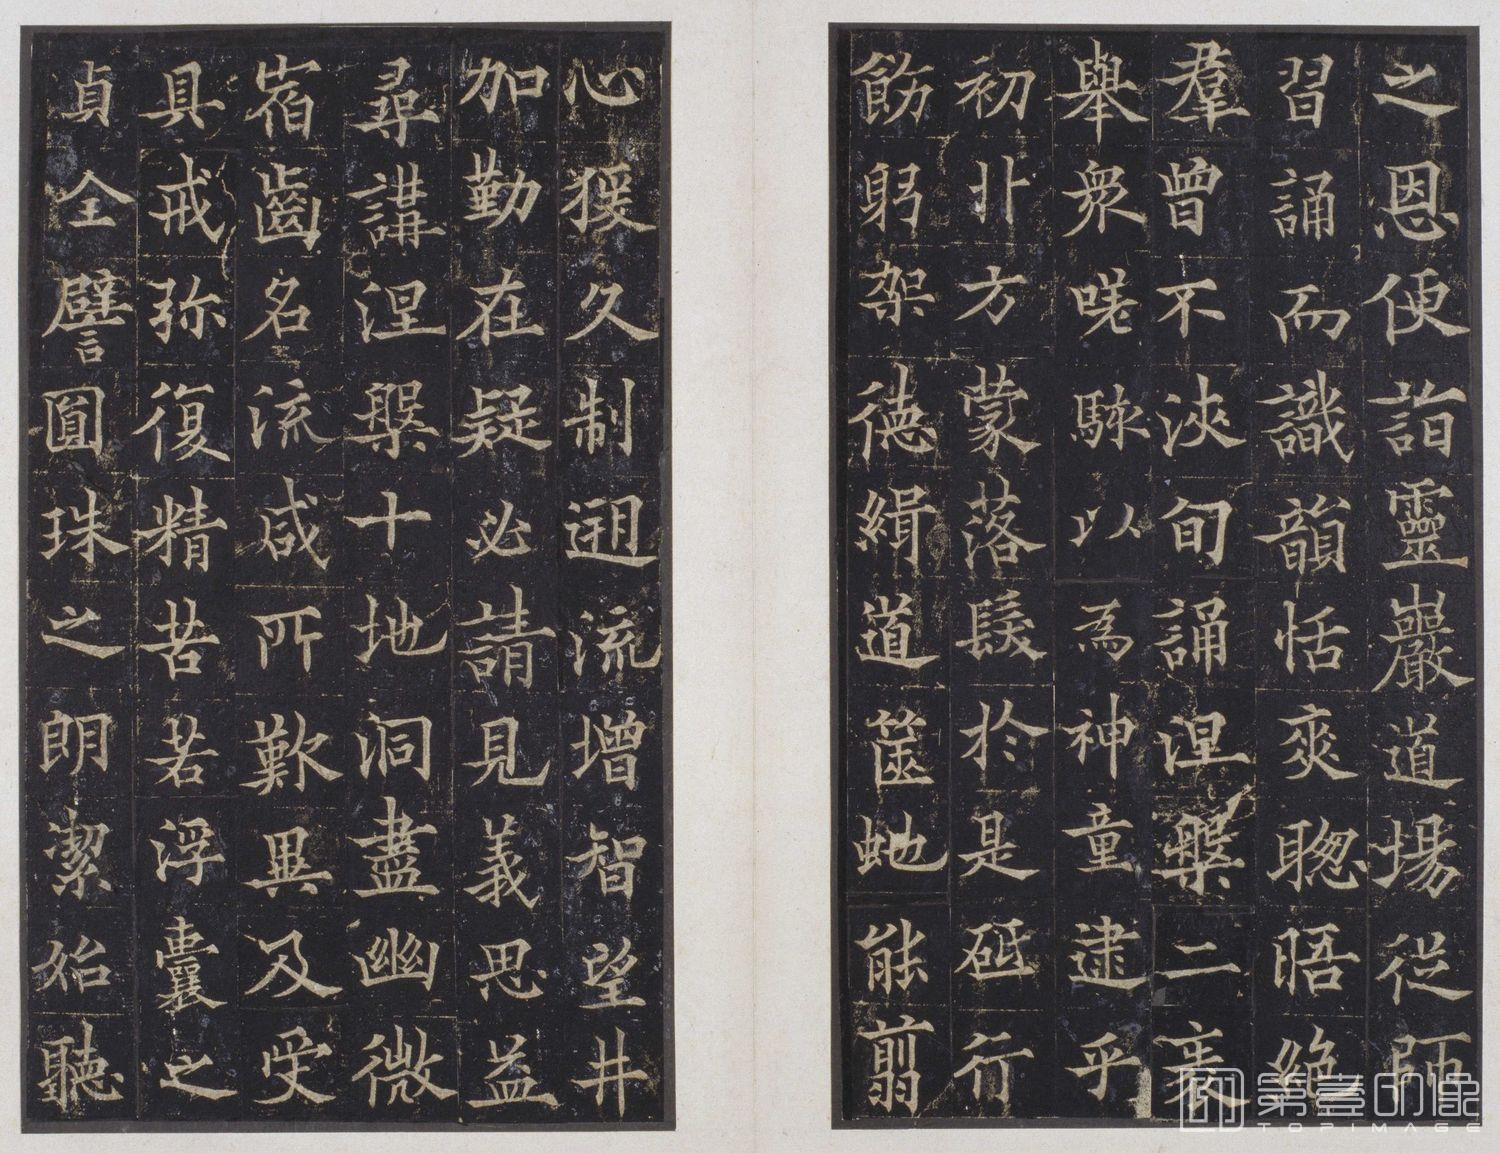 之恩便詣靈巖道場從師
習誦而識韻恬爽聰晤絶
羣曾不浹旬誦涅槃二袠
舉衆嗟駭以為神童逮乎
初丱方蒙落髮於是砥行
飭躬架德緝道篋虵能翦
心猨久制逈流增智望井
加勤在疑必請見義思益
尋講涅槃十地洞盡幽微
宿齒名流咸所歎異及受
具戒弥復精苦若浮囊之
貞全譬圓珠之朗潔始聽
第壹印像
TOPIMAGE